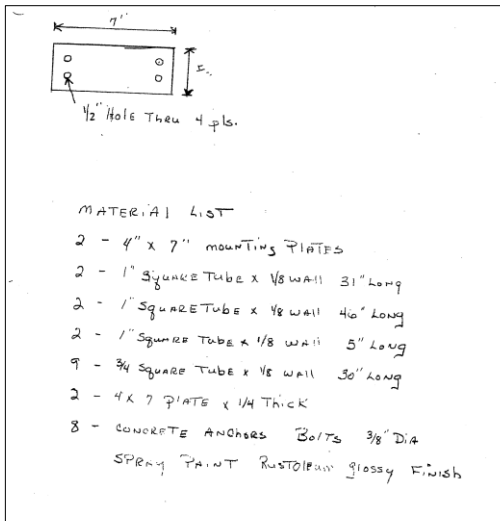 7"
1/2" Hole Thru 4 pls.
MATERIAL LIST
2 - 4" x 7" mounting PLATES
2 - 1" Square Tube x 1/8 wall 31" Long
2 - 1" Square Tube x 1/8 wall 46" Long
2 - 1" Square Tube x 1/8 wall 5" Long
9 - 3/4 Square Tube x 1/8 wall 30" Long
2 - 4 x 7 PLATE x 1/4 Thick
8 - CONCRETE ANCHORS BOLTS 3/8" DIA
SPRAY PAINT Rustoleum glossy FINISH